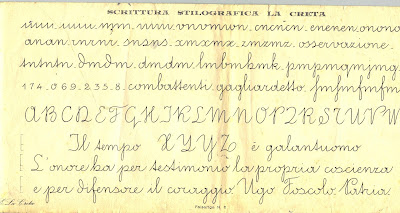 SCRITTURA STILOGRAFICA LA CRETA
vnvmvwn. cnicicn. enenen. onono
anan. inrnr. snsns. xmxmx. zmzmz. osservazione.
tntntn. dndn. dmdm. lmbmhmk. pmpmgmjmg.
174.069.235.8. combattenti. gagliardetto. fmfmfmfm
ABCDEFGHIKLMNOPQRSTUVW
Il tempo XYYZ è galantuomo
L'onore ha per testimonio la propria coscienza
e per difensore il coraggio. Ugo Foscolo. Patria.